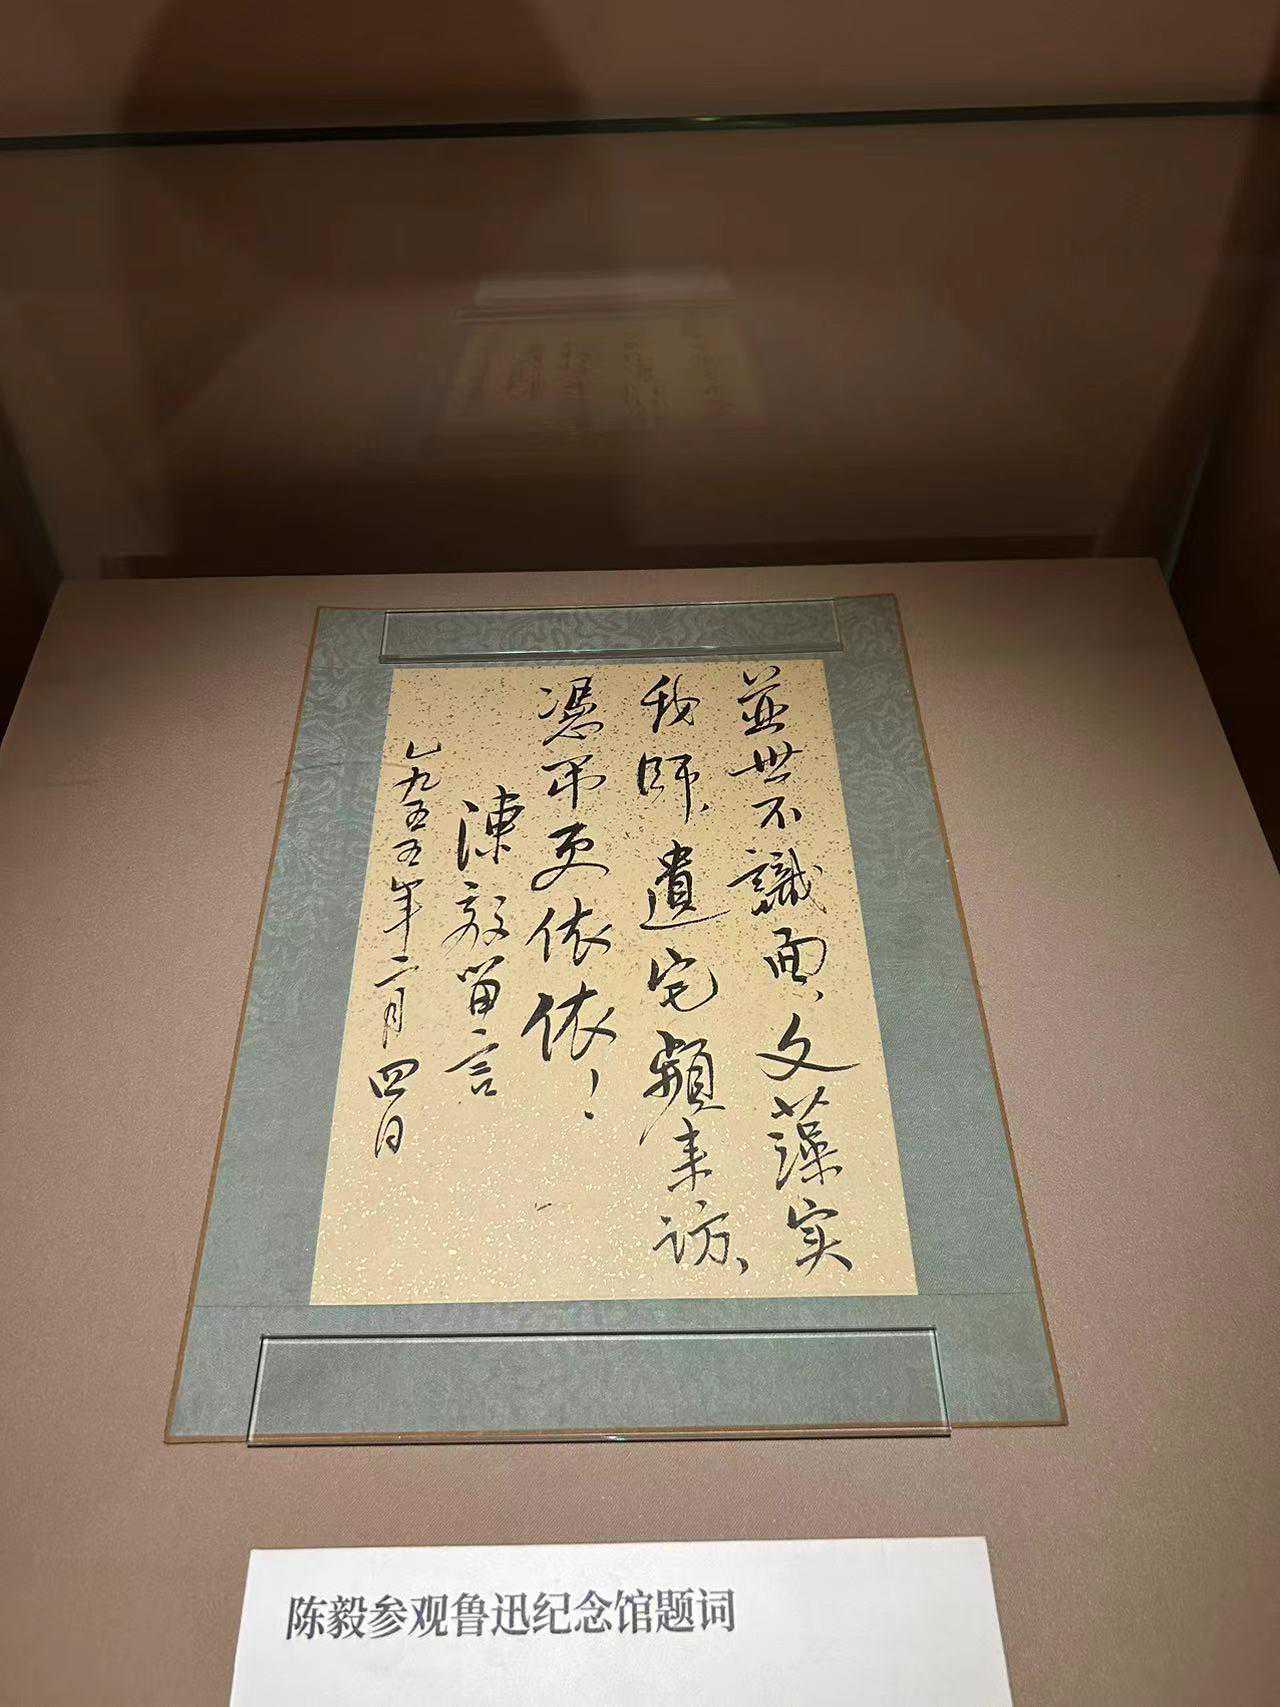 並世不識面、文藻实
我師、遺宅頻来访、
憑吊更依依！
陳毅留言
一九五五年二月四日
陈毅参观鲁迅纪念馆题词